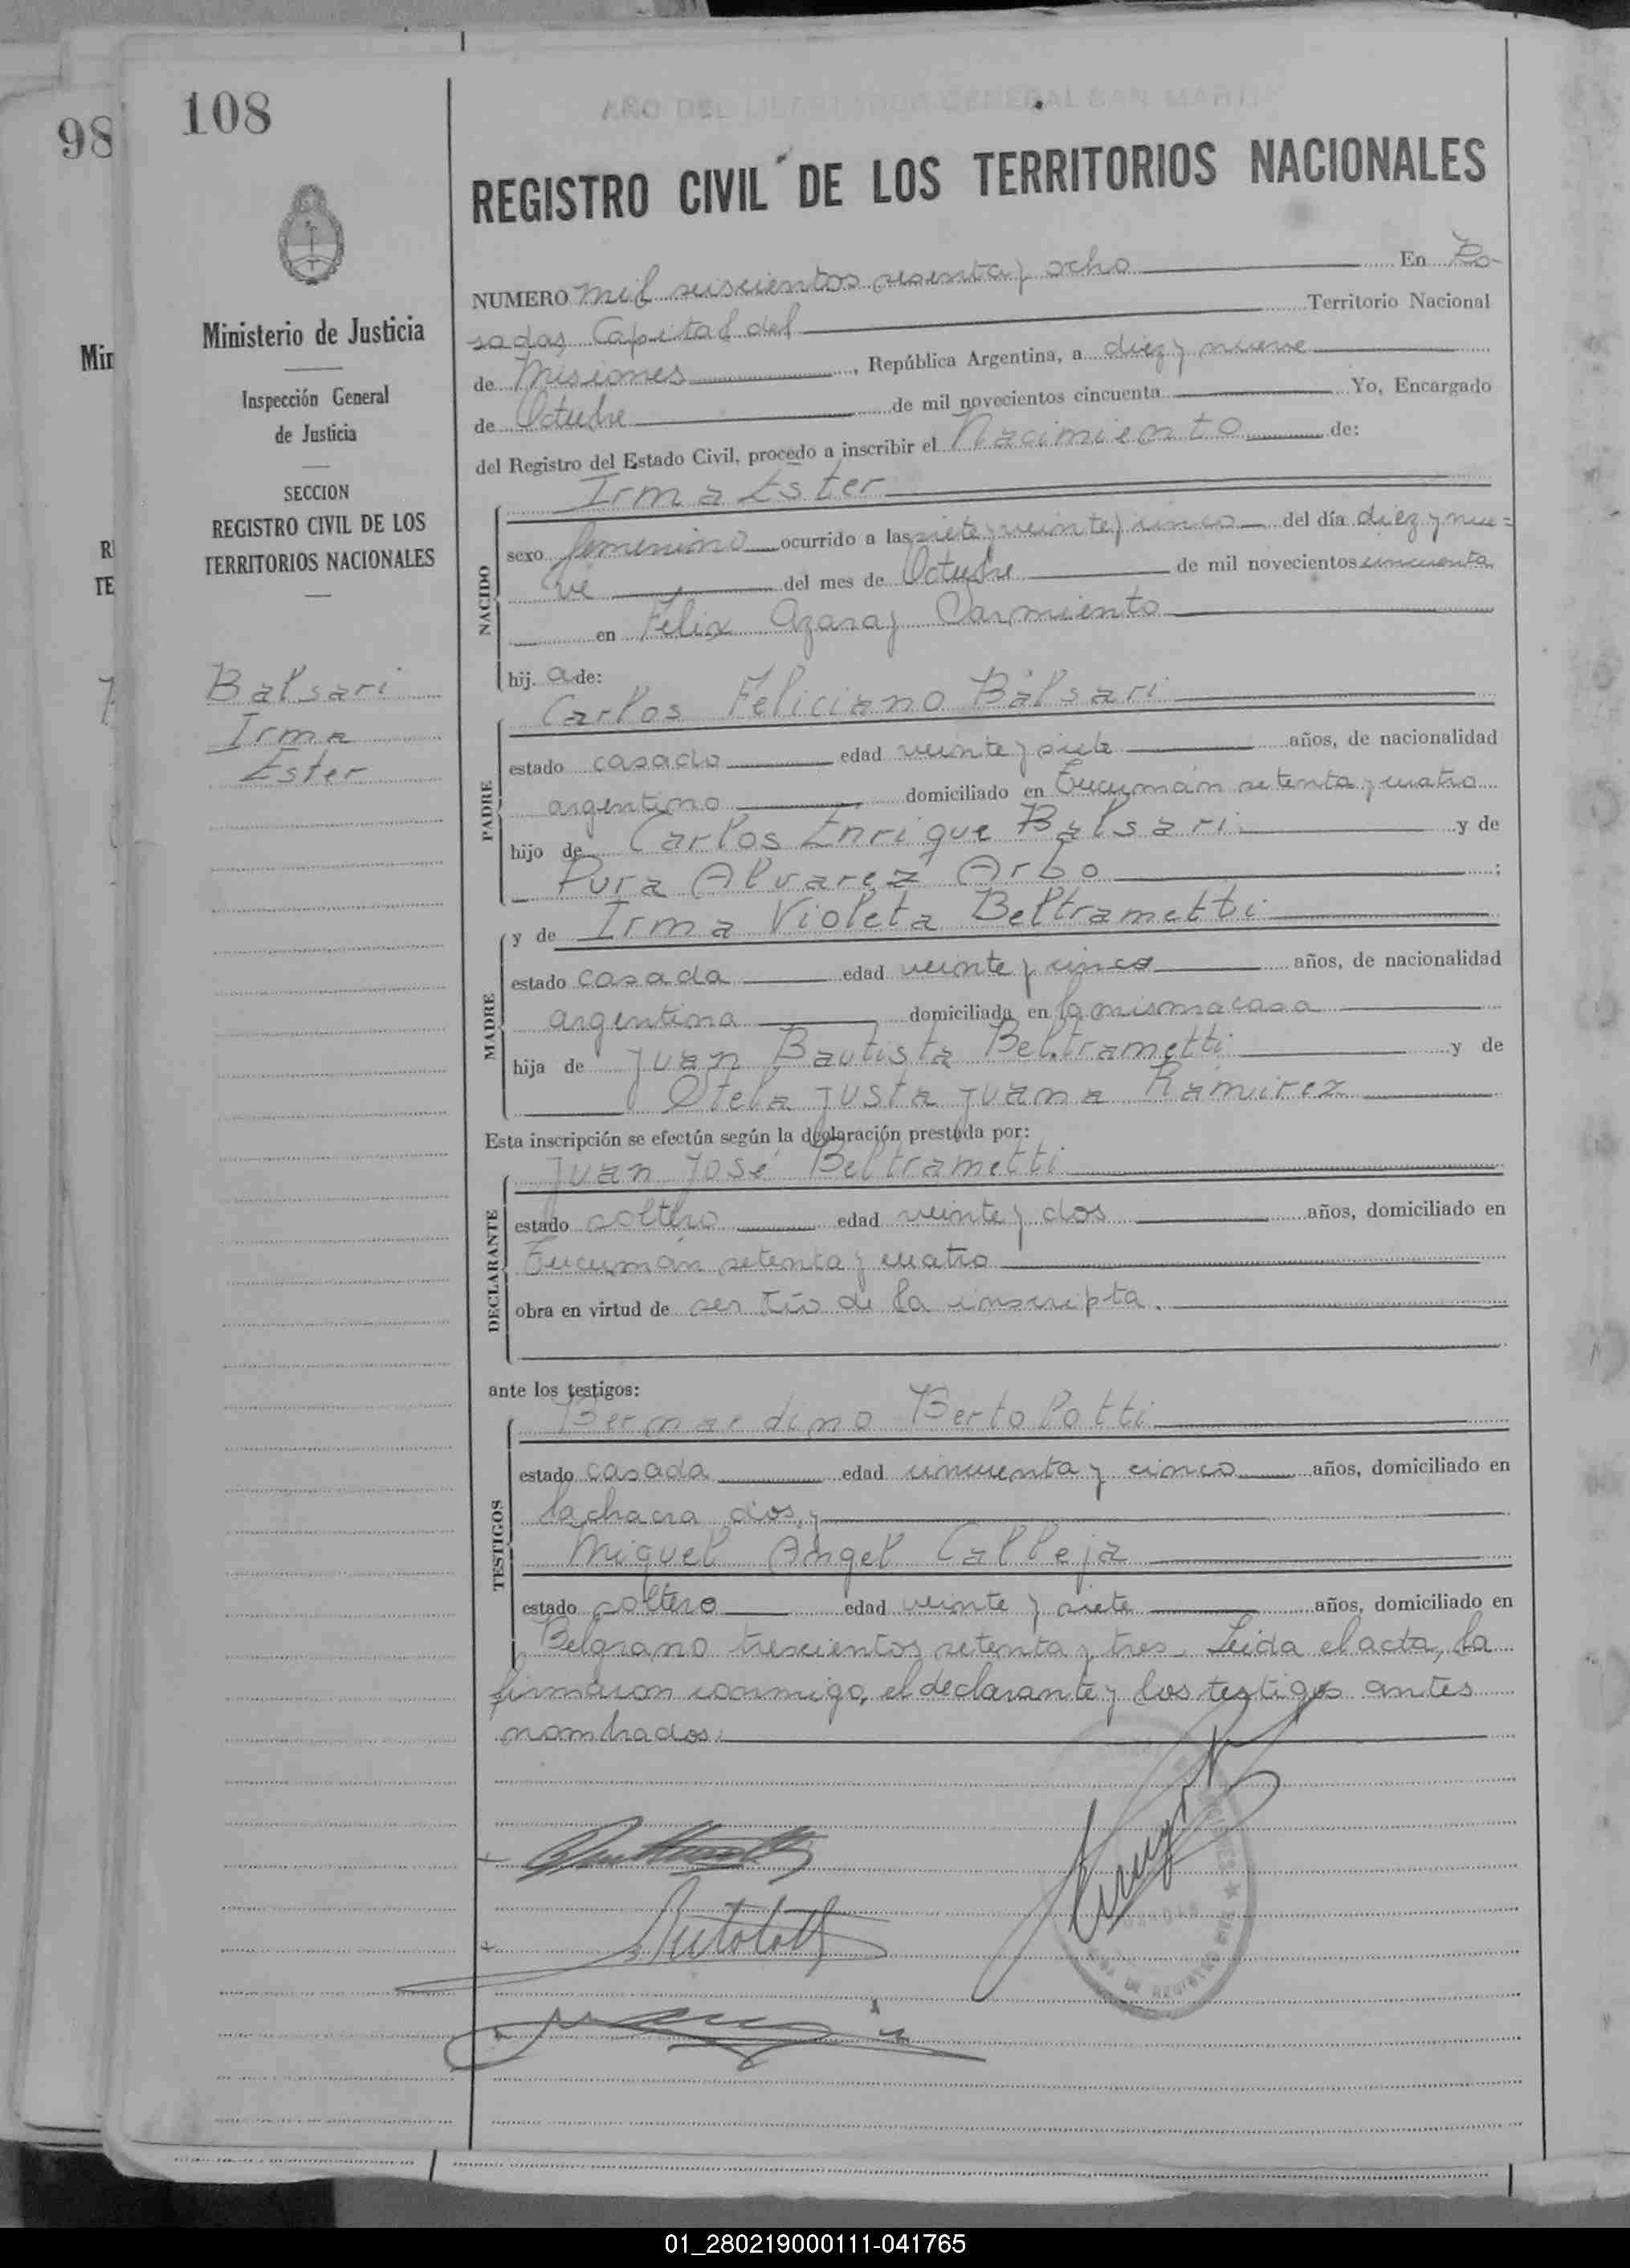 98
108
AÑO DEL LIBERTADOR GENERAL SAN MARTI
REGISTRO CIVIL DE LOS TERRITORIOS NACIONALES
Ministerio de Justicia
Inspección General
de Justicia
SECCION
REGISTRO CIVIL DE LOS
TERRITORIOS NACIONALES
Balsari
Irma
Ester
Min
R
TE
NUMERO mil seiscientos sesenta y ocho En Po-
sadas Capital del Territorio Nacional
de Misiones, República Argentina, a diez y nueve
de Octubre de mil novecientos cincuenta Yo, Encargado
del Registro del Estado Civil, procedo a inscribir el Nacimiento de:
NACIDO
Irma Ester
sexo femenino ocurrido a las siete y veinte y cinco del día diez y nue=
ve del mes de Octubre de mil novecientos cincuenta
en Félix Azara y Sarmiento
hij. a de:
PADRE
Carlos Feliciano Balsari
estado casado edad veinte y siete años, de nacionalidad
argentino domiciliado en Tucumán setenta y cuatro
hijo de Carlos Enrique Balsari y de
Pura Alvarez Arbo ;
MADRE
y de Irma Violeta Beltrametti
estado casada edad veinte y cinco años, de nacionalidad
argentina domiciliada en la misma casa
hija de Juan Bautista Beltrametti y de
Otela Justa Juana Ramirez
Esta inscripción se efectúa según la declaración prestada por:
DECLARANTE
Juan José Beltrametti
estado soltero edad veinte y dos años, domiciliado en
Tucumán setenta y cuatro
obra en virtud de ser tío de la inscripta.
ante los testigos:
TESTIGOS
Bernardino Bertolotti
estado casada edad cincuenta y cinco años, domiciliado en
la chacra dos, y
Miguel Angel Calleja
estado soltero edad veinte y siete años, domiciliado en
Belgrano trescientos setenta y tres. Leida el acta, la
firmaron conmigo, el declarante y los testigos antes
nombrados:
01_280219000111-041765